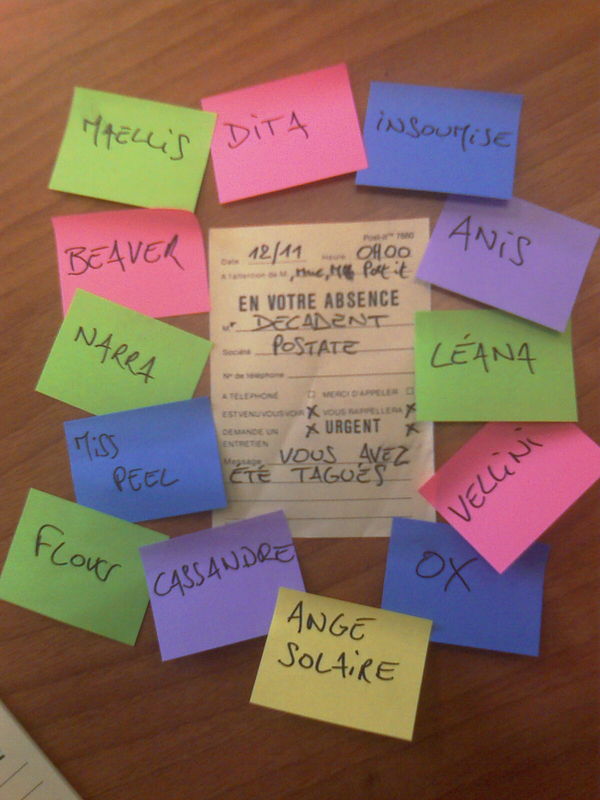 MAELLIS
DITA
INSOUMISE
BEAVER
ANIS
NARRA
LÉANA
MISS
PEEL
VELLINI
CASSANDRE
OX
ANGE
SOLAIRE
Post-it™ 7660
Date 12/11 Heure 0H00
A l'attention de M, Mme, Mlle Post it
EN VOTRE ABSENCE
Mr DECADENT
Société POSTATE
N° de téléphone
A TELEPHONE ☐ MERCI D'APPELER ☐
EST VENU VOUS VOIR X VOUS RAPPELLERA X
DEMANDE UN X URGENT X
ENTRETIEN
Message VOUS AVEZ
ÉTÉ TAGUÉS